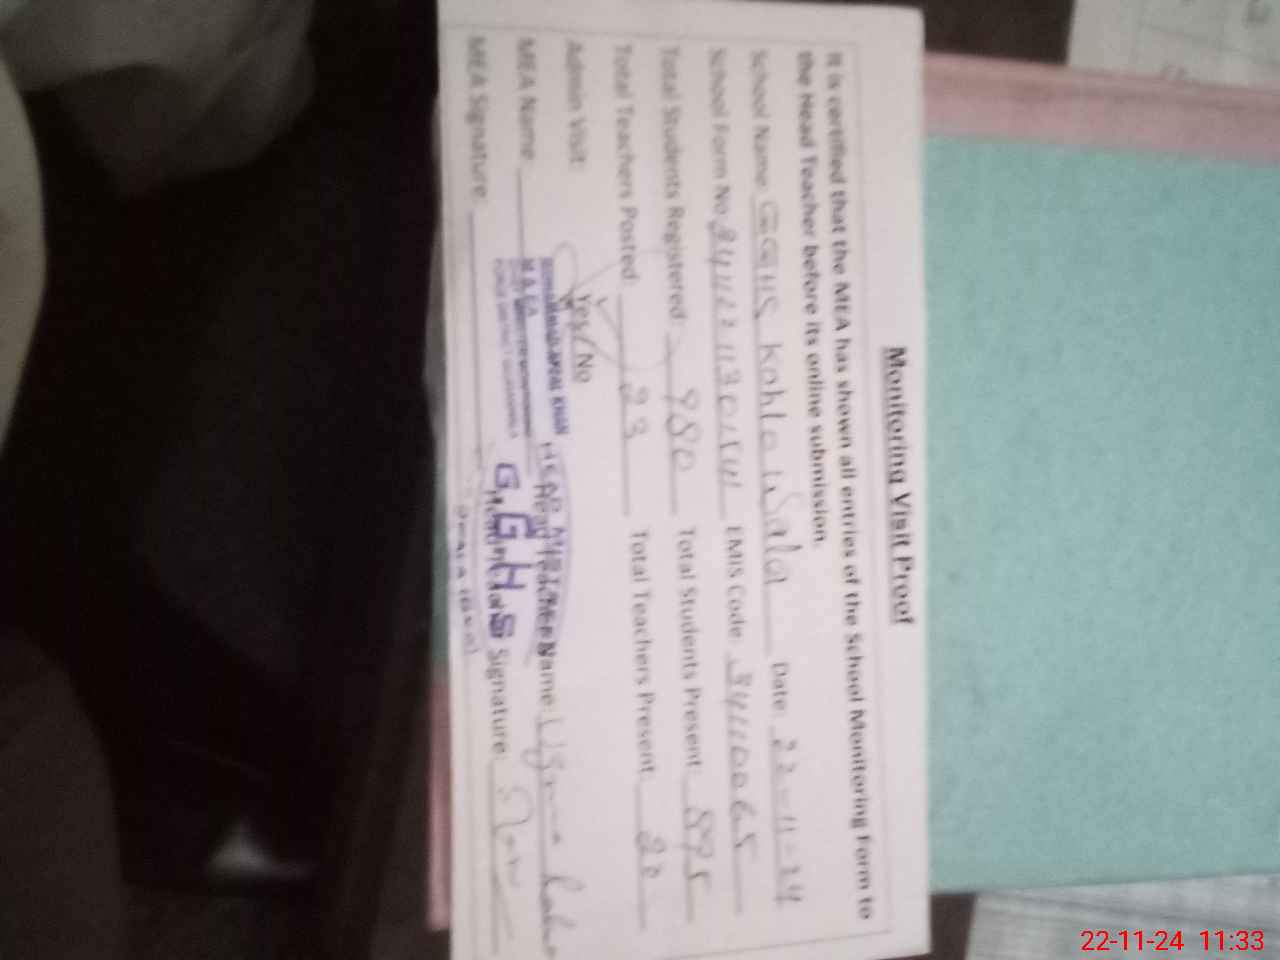 Monitoring Visit Proof
It is certified that the MEA has shown all entries of the School Monitoring Form to
the Head Teacher before its online submission.
School Name GGHS Kohlo Wala Date: 22-11-24
School Form No. EMIS Code 34110065
Total Students Registered: 980 Total Students Present: 895
Total Teachers Posted: 23 Total Teachers Present 20
Admin Visit: Yes/No
MEA Name Head Teacher Name:
MEA Signature Signature:
HEAD MISTRESS
G.G.H.S
22-11-24 11:33